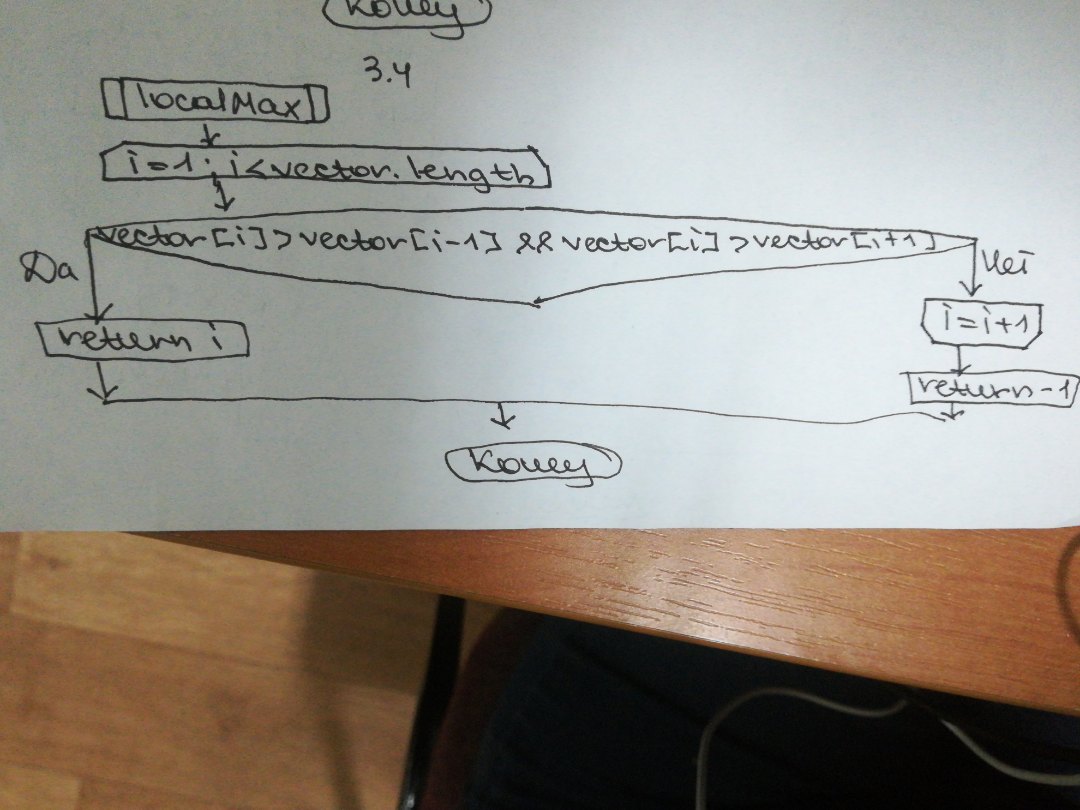 Конец
3.4
localMax
i=1; i<vector.length
vector[i]>vector[i-1] && vector[i]>vector[i+1]
Да
Нет
i=i+1
return i
return-1
Конец